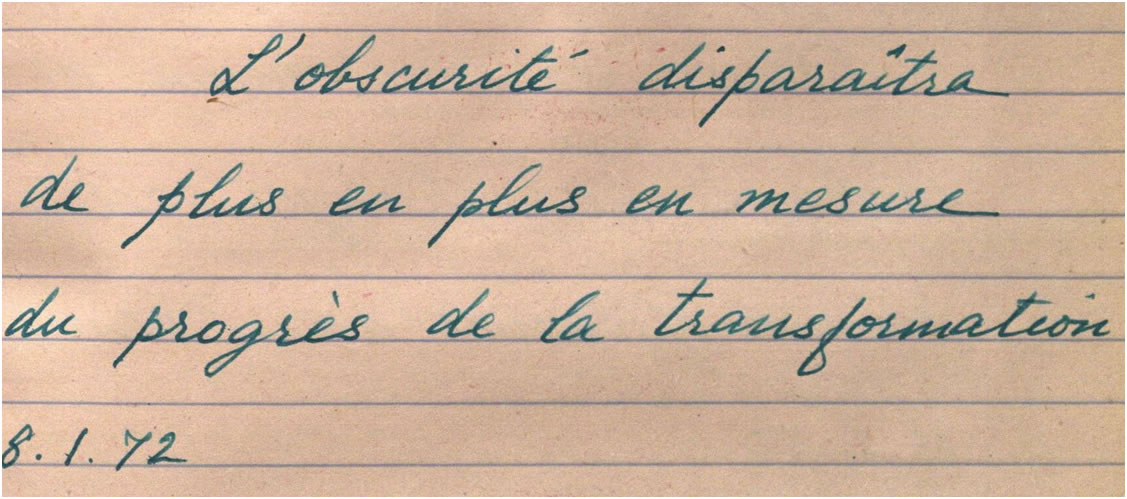 L'obscurité disparaîtra
de plus en plus en mesure
du progrès de la transformation
8.1.72